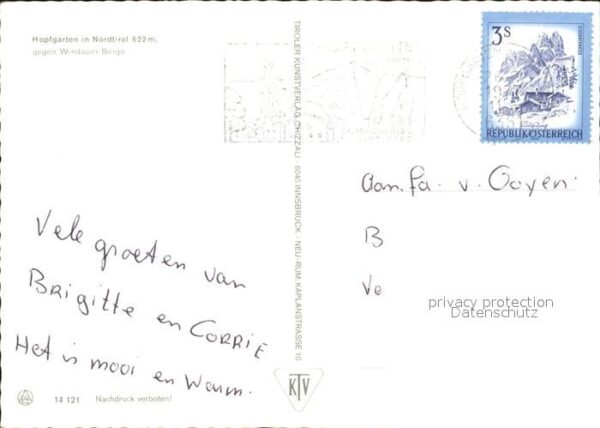 Hopfgarten in Nordtirol 622 m,
gegen Windauer Berge
3S
REPUBLIK ÖSTERREICH
TIROLER KUNSTVERLAG CHIZZALI · 6040 INNSBRUCK - NEU-RUM KAPLANSTRASSE 10
Aan. fa. v. Ooyen.
B
Ve
privacy protection
Datenschutz
Vele groeten van
Brigitte en CORRIE
Het is mooi en Warm.
14 121 Nachdruck verboten!
KTV